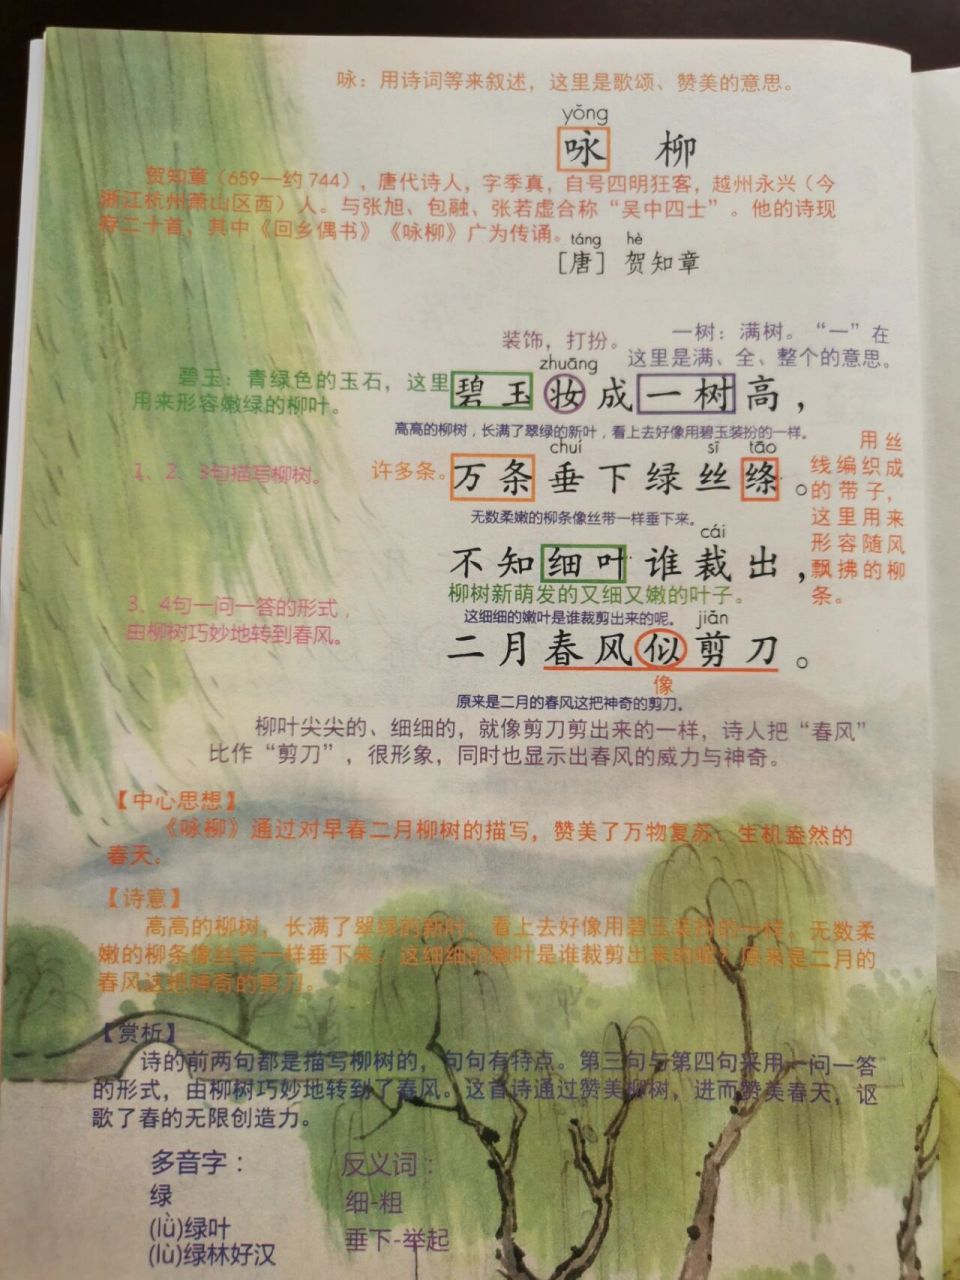 咏：用诗词等来叙述，这里是歌颂、赞美的意思。
yǒng
咏 柳
贺知章（659—约744），唐代诗人，字季真，自号四明狂客，越州永兴（今
浙江杭州萧山区西）人。与张旭、包融、张若虚合称“吴中四士”。他的诗现
存二十首，其中《回乡偶书》《咏柳》广为传诵。
táng hè
［唐］ 贺知章
装饰，打扮。
一树：满树。“一”在
这里是满、全、整个的意思。
碧玉：青绿色的玉石，这里
用来形容嫩绿的柳叶。
zhuāng
碧玉妆成一树高，
高高的柳树，长满了翠绿的新叶，看上去好像用碧玉装扮的一样。
1、2、3句描写柳树。
许多条。
chuí sī tāo
万条垂下绿丝绦。
用丝
线编织成
的带子，
这里用来
形容随风
飘拂的柳
条。
无数柔嫩的柳条像丝带一样垂下来。
cái
不知细叶谁裁出，
柳树新萌发的又细又嫩的叶子。
这细细的嫩叶是谁裁剪出来的呢。
3、4句一问一答的形式，
由柳树巧妙地转到春风。
jiǎn
二月春风似剪刀。
像
原来是二月的春风这把神奇的剪刀。
柳叶尖尖的、细细的，就像剪刀剪出来的一样，诗人把“春风”
比作“剪刀”，很形象，同时也显示出春风的威力与神奇。
【中心思想】
《咏柳》通过对早春二月柳树的描写，赞美了万物复苏、生机盎然的
春天。
【诗意】
高高的柳树，长满了翠绿的新叶，看上去好像用碧玉装扮的一样。无数柔
嫩的柳条像丝带一样垂下来。这细细的嫩叶是谁裁剪出来的呢？原来是二月的
春风这把神奇的剪刀。
【赏析】
诗的前两句都是描写柳树的，句句有特点。第三句与第四句采用一问一答
的形式，由柳树巧妙地转到了春风。这首诗通过赞美柳树，进而赞美春天，讴
歌了春的无限创造力。
多音字：
绿
(lǜ)绿叶
(lù)绿林好汉
反义词：
细-粗
垂下-举起